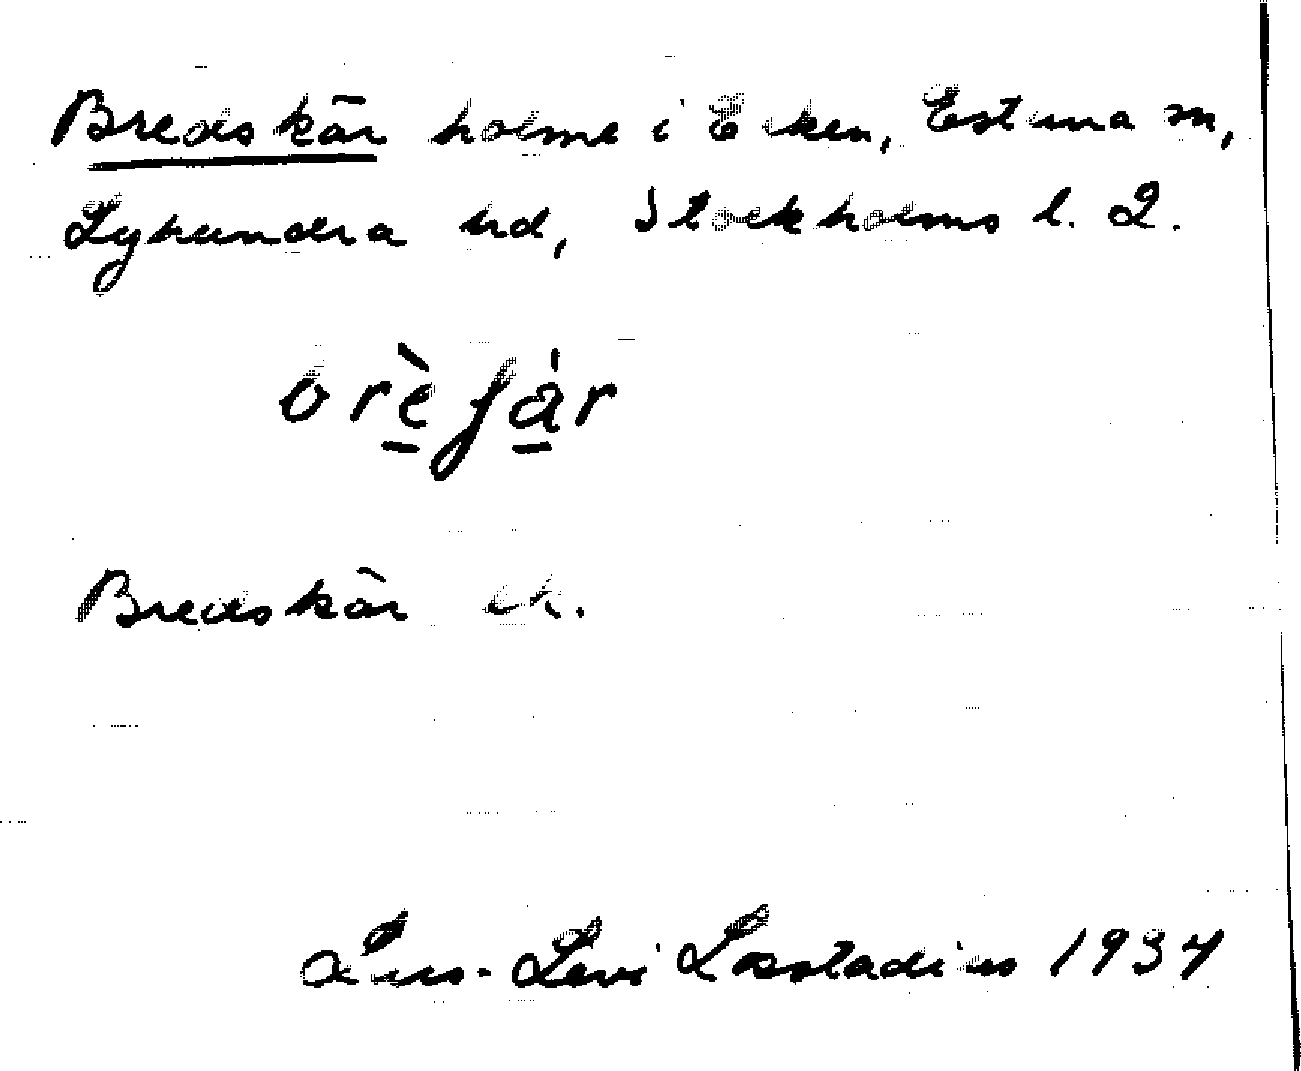 Bredskär holme i Erken, Estuna sn,
Lyhundra hd, Stockholms l. 2.
brèfár
Bredskär ek.
Lars-Levi Læstadius 1934